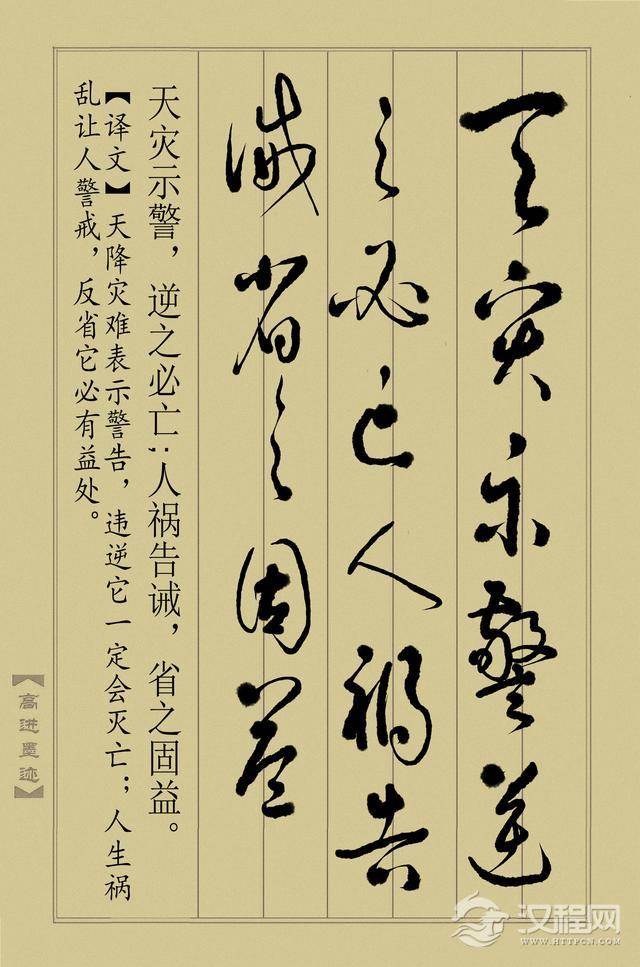 天灾示警逆
之必亡人祸告
诫省之固益
天灾示警，逆之必亡；人祸告诫，省之固益。
【译文】天降灾难表示警告，违逆它一定会灭亡；人生祸
乱让人警戒，反省它必有益处。
【高进墨迹】
汉程网
WWW.HTTPCN.COM